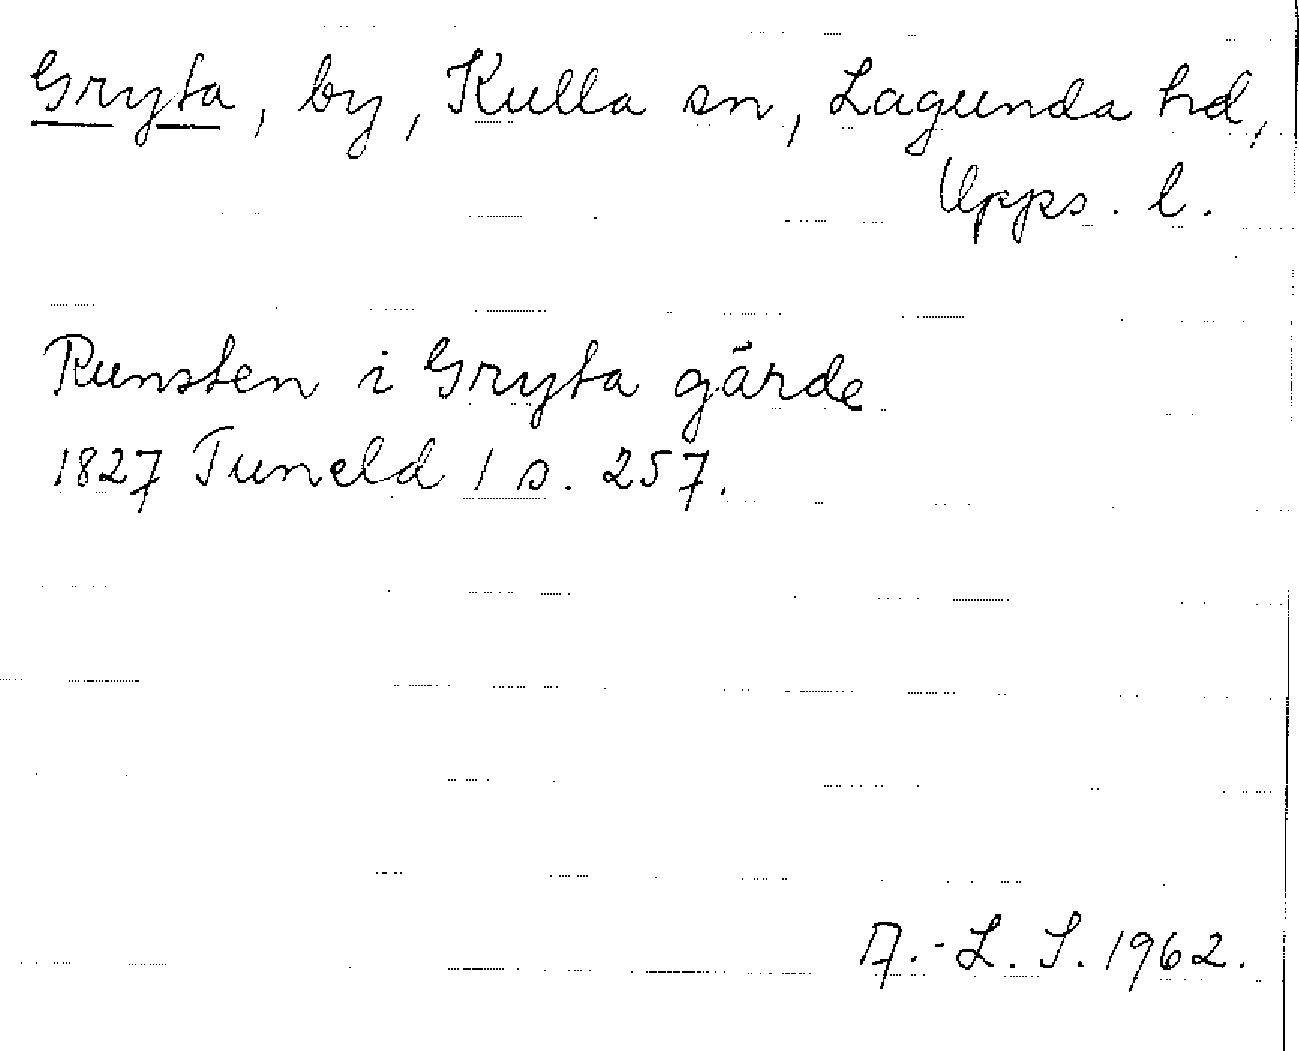 Gryta, by, Kulla sn, Lagunda hd,
Upps. l.
Runsten i Gryta gärde
1827 Tuneld 1 s. 257.
A.-L. S. 1962.